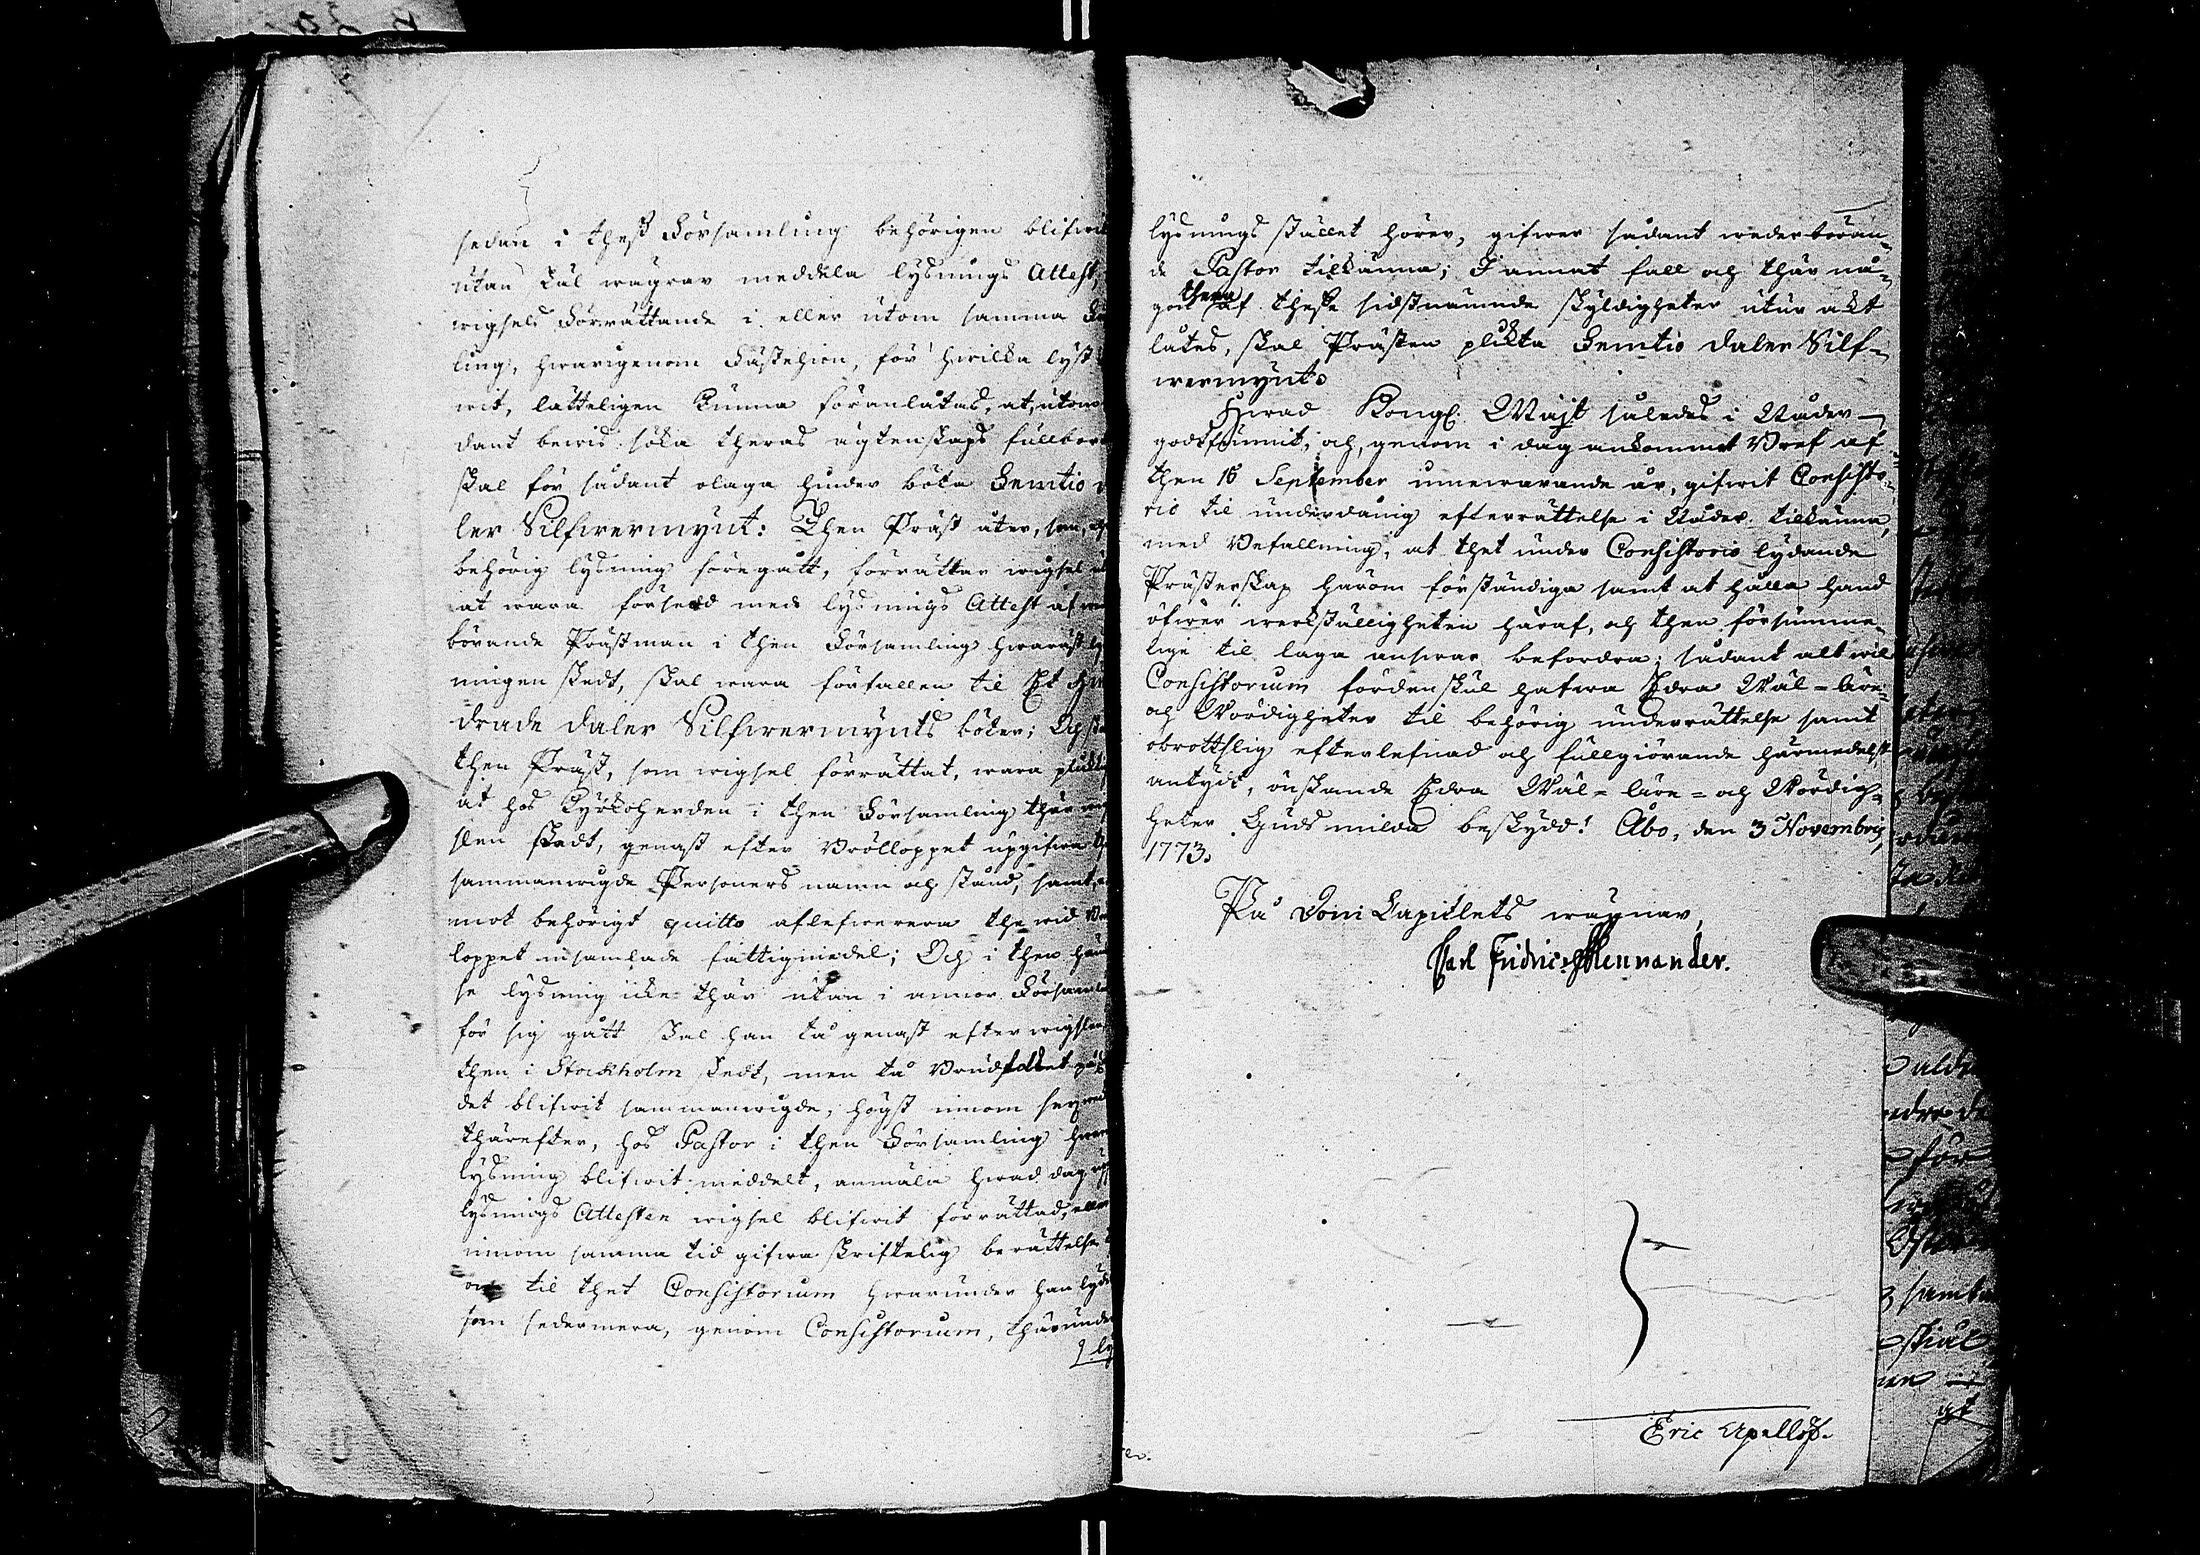 sedan i thess Församling behörigen blifwit
utan skäl wägrar meddela lysnings Attest,
wigsels förrättande i eller utom samma
ling, hwarigenom Fästehion, för hwilka lyst
wit, lätteligen kunna föranlåtas, at, utom
dant bewis söka theras ägtenskaps fullbor
skal för sådant olaga hinder böta Femtio
ler Silfwermynt: Then Präst åter, som,
behörig lysning föregått, förrättar wigsel
at wara försedd med lysnings Attest af
börande Prästman i then Församling hwaräst ly
ningen skedt, skal wara förfallen til Et
drade daler Silfwermynts böter; Och
then Präst, som wigsel förrättat, wara pliktig
at hos Kyrkoherden i then Församling ther
slen skedt, genast efter Bröllopet upgifwa
sammanwigde Personers namn och stånd, samt,
mot behörigt quitto aflefwerera the wid
loppet insamlade fattigmedel; Och i then
se lysning icke ther utan i annor Församl
för sig gått skal han tå genast efter wigslen,
then i Stockholm skedt, men tå Brudfolket på
det blifwit sammanwigde, högst innom sex
therefter, hos Pastor i then Församling
lysning blifwit meddelt, anmäla hwad dag
lysnings Attesten wigsel blifwit förrättad, eller
innom samma tid gifwa skriftelig berättelse
om til thet Consistorium hwarunder han lyder
som sedermera, genom Consistorium, tharunder
ly
lysnings stället hörer, gifwer sådant wederböran-
de Pastor tilkänna; I annat fall och ther nå-
got thera af thesse sidstnämnde skyldigheter utur akt
låtes, skal Prästen plickta Femtio daler Silf-
wermynt.
Hwad Kongl. Majt således i Nåder
godtfunnit, och, genom i dag ankommit Bref af
then 16 September innewarande år, gifwit Consisto-
rio til underdånig efterrättelse i Nåder tilkänna,
med Befallning, at thet under Consistorio lydande
Prästerskap härom förständiga samt at hålla hand
öfwer werkställigheten häraf, och then försumme-
lige til laga answar befordra; sådant alt wil
Consistorium fördenskul hafwa Edra Wäl-äre-
och Wördigheter til behörig underrättelse samt
obrottslig efterlefnad och fullgiörande härmedelst
antydt, önskande Edra Wäl-äre- och Wördig-
heter Guds milda beskydd! Åbo, den 3 Novembris,
1773.
På Dom Capitlets wägnar,
Carl Fridric Mennander.
Eric Apelloff.